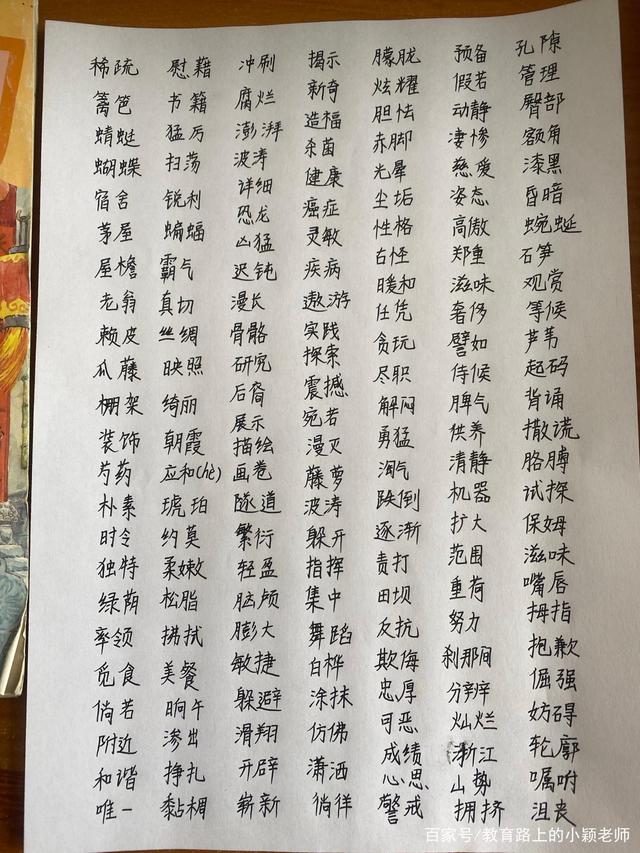 稀疏
篱笆
蜻蜓
蝴蝶
宿舍
茅屋
屋檐
老翁
赖皮
瓜藤
棚架
装饰
芍药
朴素
时令
独特
绿荫
率领
觅食
倘若
附近
和谐
唯一
慰藉
书籍
猛厉
扫荡
锐利
蝙蝠
霸气
真切
丝绸
映照
绮丽
朝霞
应和(hè)
琥珀
约莫
柔嫩
松脂
拂拭
美餐
晌午
渗出
挣扎
黏稠
冲刷
腐烂
澎湃
波涛
详细
恐龙
凶猛
迟钝
漫长
骨骼
研究
后裔
展示
描绘
画卷
隧道
繁衍
轻盈
脑颅
膨大
敏捷
躲避
滑翔
开辟
崭新
揭示
新奇
造福
杀菌
健康
癌症
灵敏
疾病
遨游
实践
探索
震撼
宛若
漫灭
藤萝
波涛
躲开
指挥
集中
舞蹈
白桦
涂抹
仿佛
潇洒
徜徉
朦胧
炫耀
胆怯
赤脚
光晕
尘垢
性格
暖和
任凭
贪玩
尽职
解闷
勇猛
淘气
跌倒
逐渐
责打
田坝
反抗
欺侮
忠厚
可恶
成绩
心思
警戒
预备
假若
动静
凄惨
慈爱
姿态
高傲
郑重
滋味
奢侈
譬如
侍候
脾气
供养
清静
机器
扩大
范围
重荷
努力
刹那间
分辨
灿烂
浙江
山势
拥挤
孔隙
管理
臀部
额角
漆黑
昏暗
蜿蜒
石笋
观赏
等候
芦苇
起码
背诵
撒谎
胳膊
试探
保姆
滋味
嘴唇
拇指
抱歉
倔强
妨碍
轮廓
嘱咐
沮丧
百家号/教育路上的小颖老师